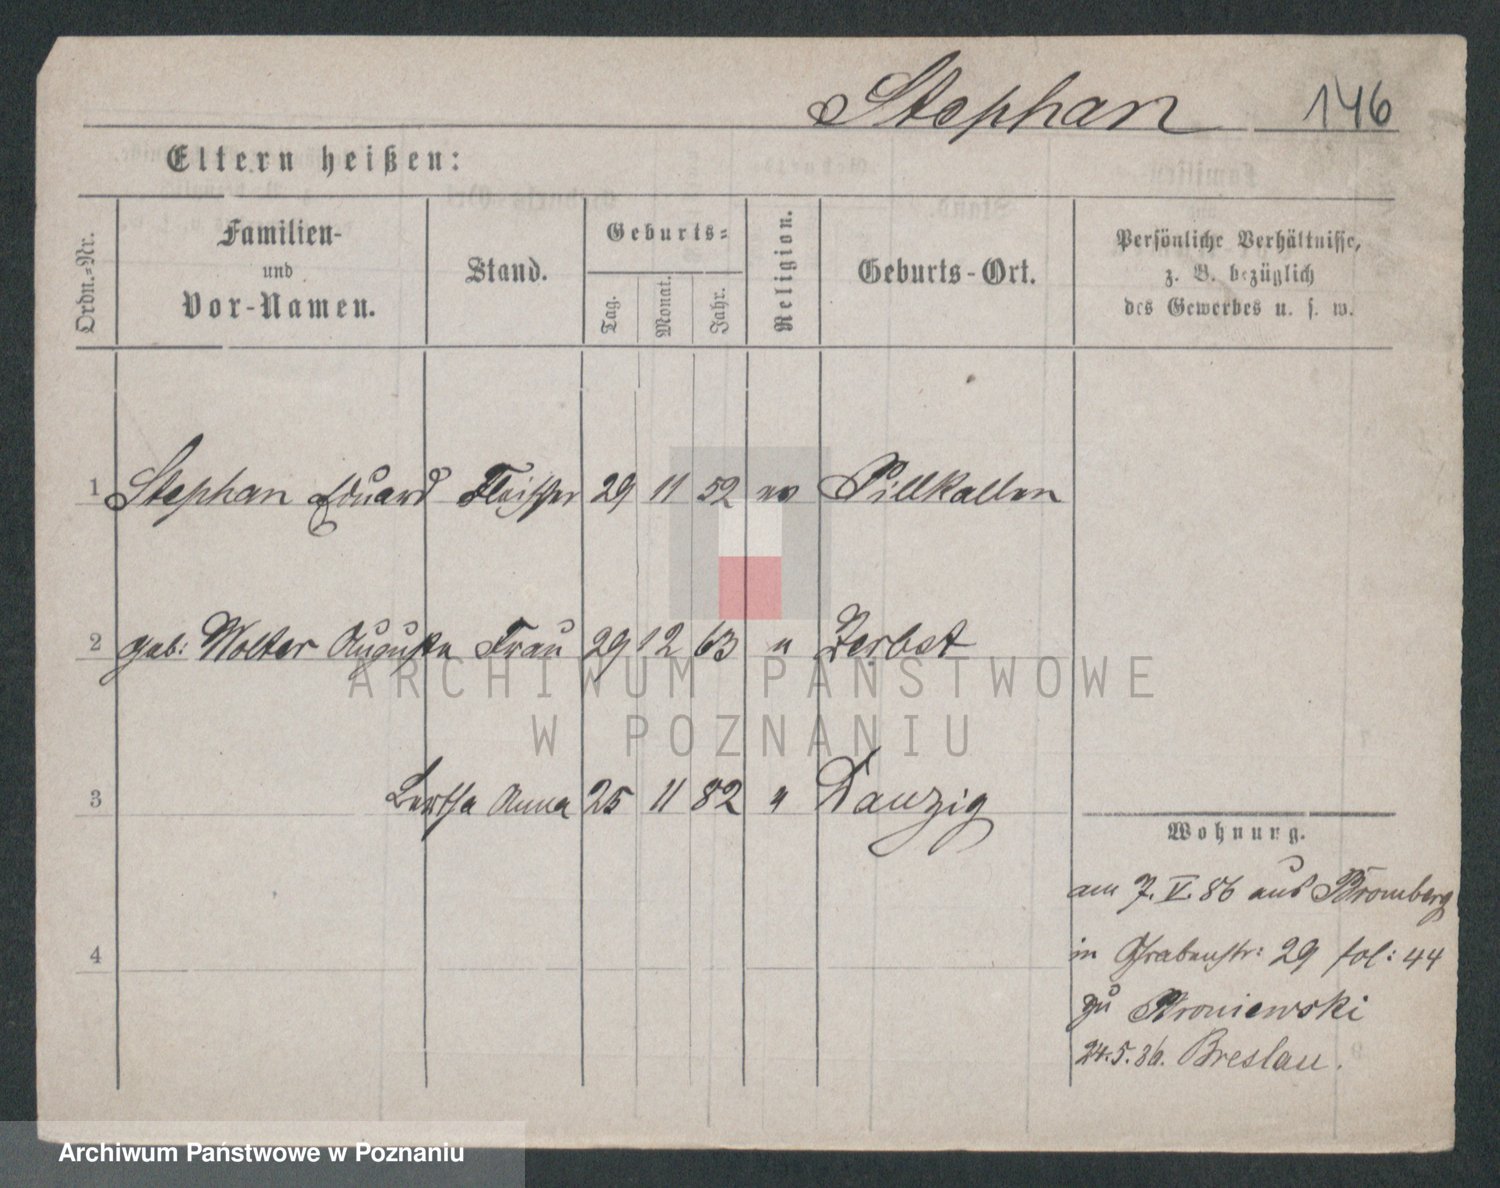 Stephan 146
Eltern heißen:
Ordn.-Nr.
Familien-
und
Vor-Namen.
Stand.
Geburts-
Tag.
Monat.
Jahr.
Religion.
Geburts-Ort.
Persönliche Verhältnisse,
z. B. bezüglich
des Gewerbes u. s. w.
1 Stephan Eduard 29 11 52 ev Pillkallen
2 geb: Wolter Auguste Frau 29 12 63 " Zerbst
3 Bertha Anna 25 11 82 " Danzig
4
Wohnung.
am 7. V. 86 aus Bromberg
in Grabenstr: 29 fol: 44
zu Broniewski
24.5.86. Breslau.
ARCHIWUM PAŃSTWOWE
W POZNANIU
Archiwum Państwowe w Poznaniu